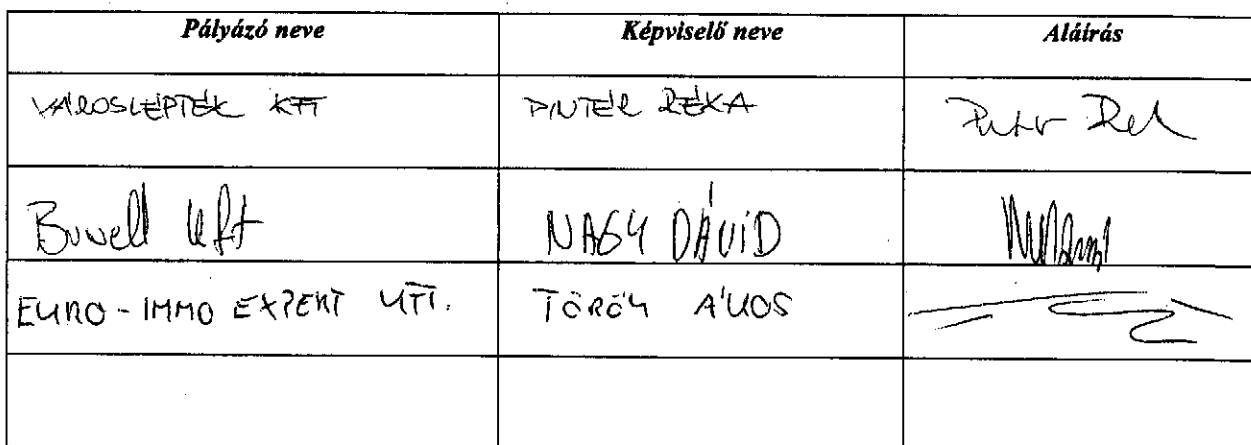 Pályázó neve Képviselő neve Aláírás
VÁROSLÉPTÉK KFT PINTÉR RÉKA
Buwell Kft NAGY DÁVID
EURO-IMMO EXPERT KFT. TÖRÖK ÁKOS